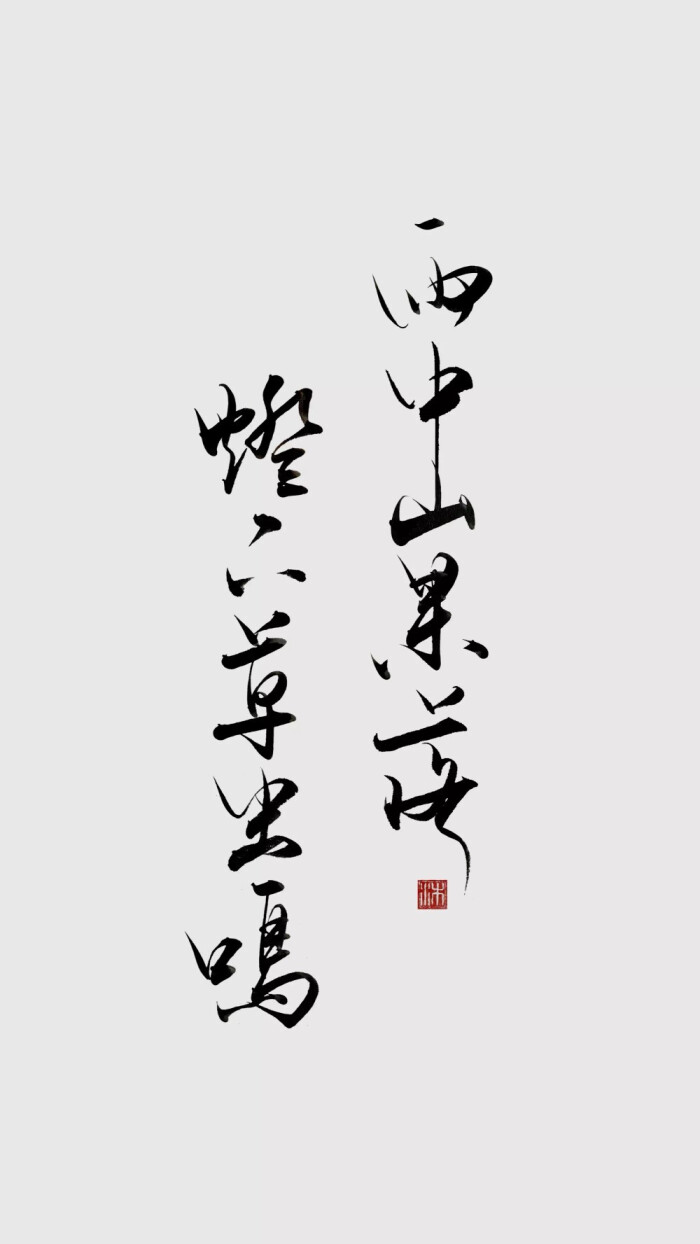 雨中山果落
燈下草虫鳴